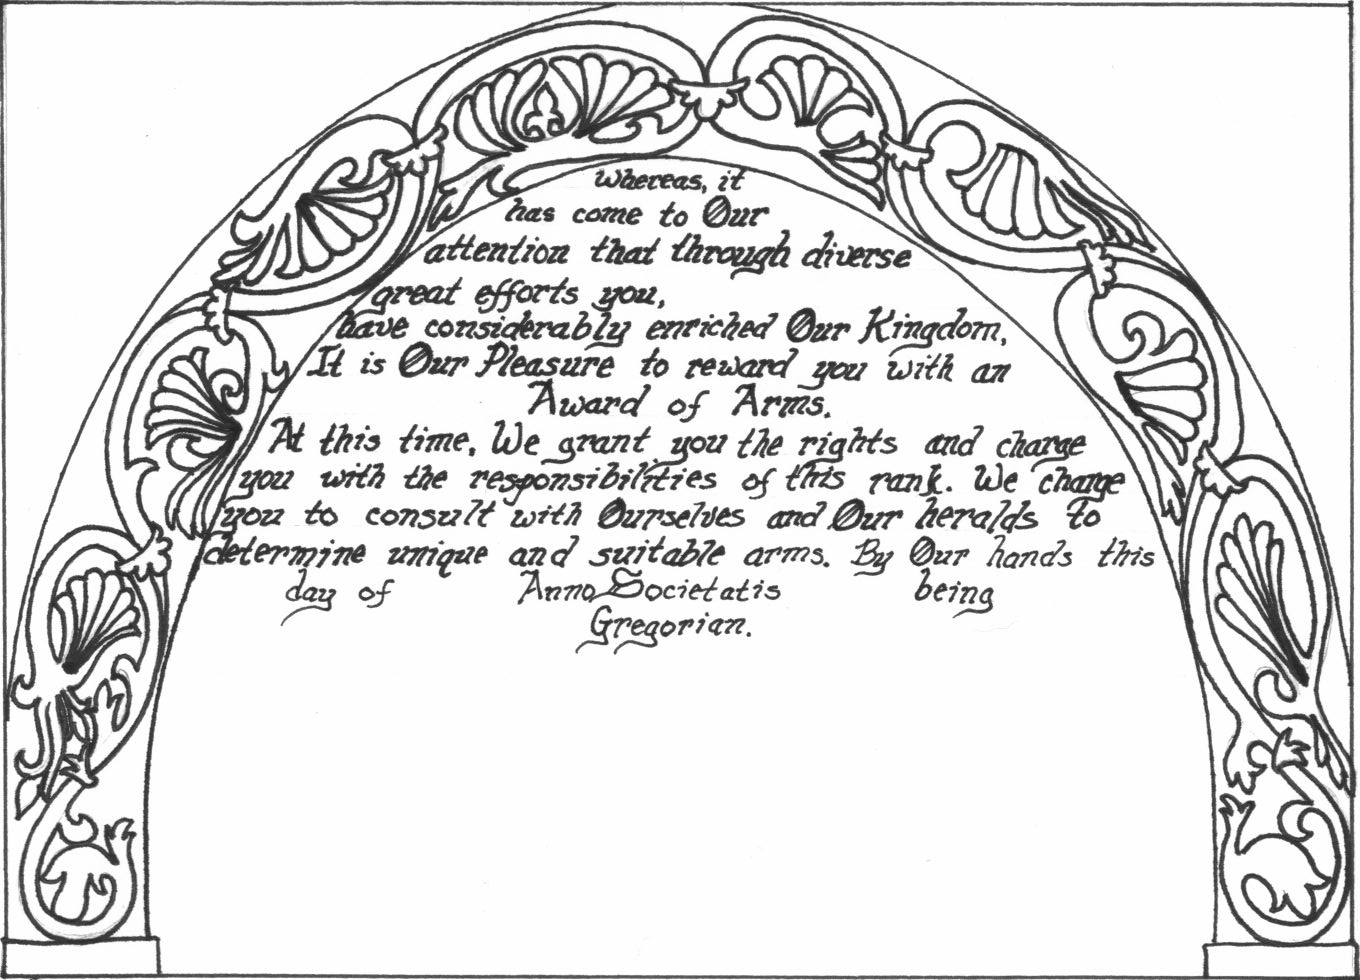 Whereas, it
has come to Our
attention that through diverse
great efforts you,
have considerably enriched Our Kingdom,
It is Our Pleasure to reward you with an
Award of Arms.
At this time, We grant you the rights and charge
you with the responsibilities of this rank. We charge
you to consult with Ourselves and Our heralds to
determine unique and suitable arms. By Our hands this
day of Anno Societatis being
Gregorian.